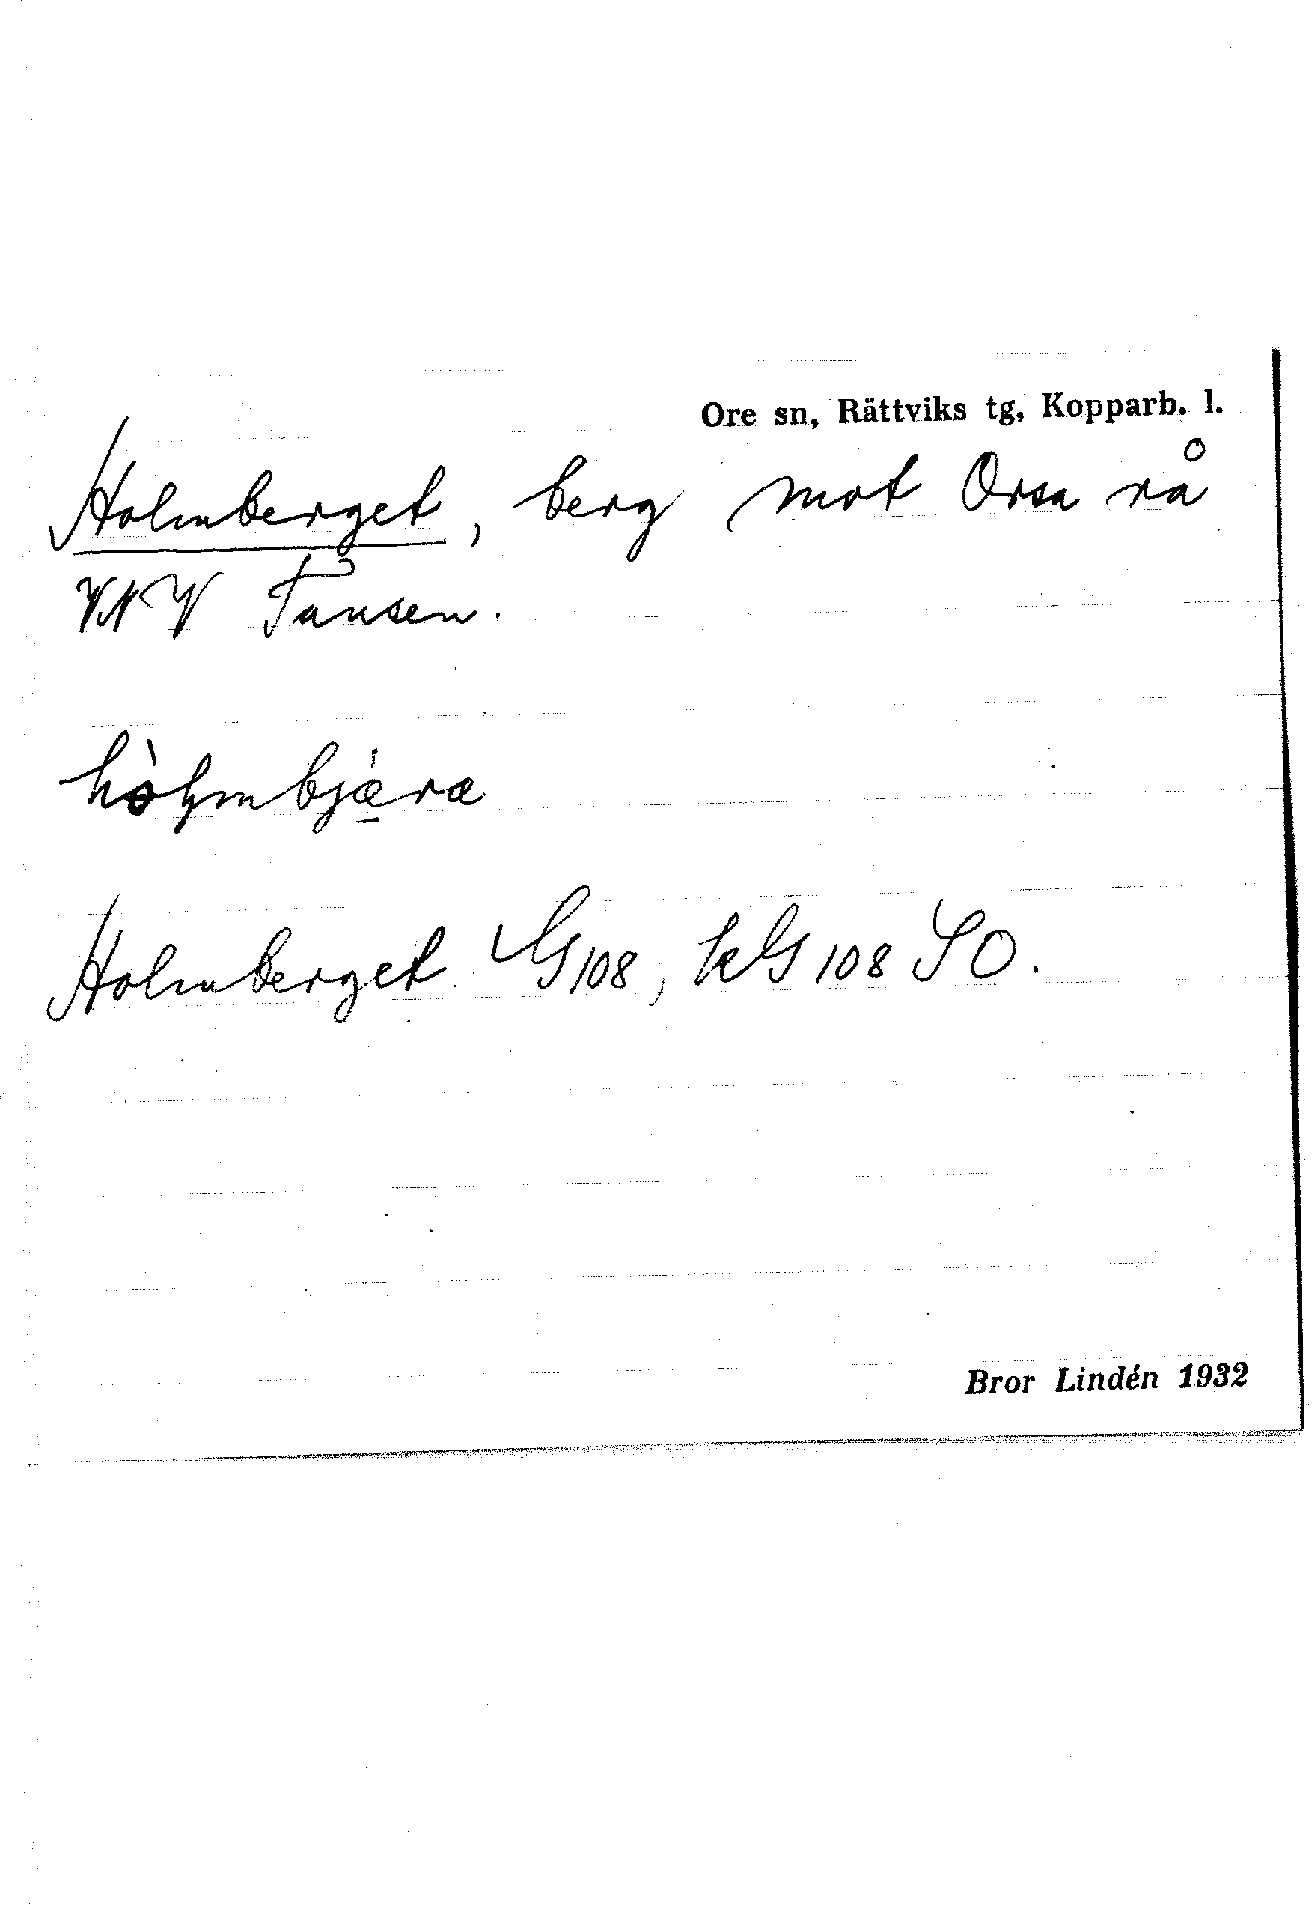 Ore sn, Rättviks tg, Kopparb. l.
Holmberget, berg mot Orsa rå
VNV Tansen.
Holmberget G108, kG108 SO.
Bror Lindén 1932